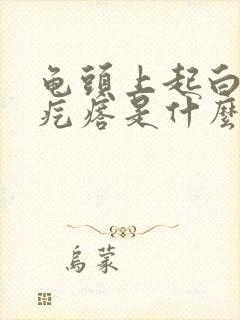 龟頭上起白
疙瘩是什麼
烏蒙